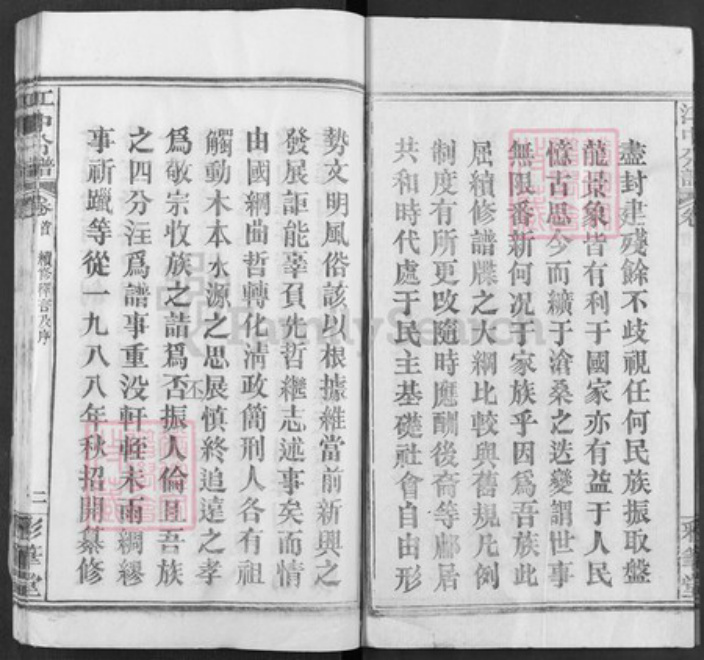 盡封建殘餘不歧視任何民族振取盤
龍景象皆有利于國家亦有益于人民
憶古思今而纊于滄桑之迭變謂世事
無限番新何況于家族乎因爲吾族此
屆續修譜牒之大綱比較與舊規凡例
制度有所更改隨時應酬後裔等鄘居
共和時代處于民主基礎社會自由形
勢文明風俗該以根據維當前新興之
發展詎能辜負先哲繼志述事矣而情
由國綱曲哲轉化清政簡刑人各有祖
觸動木本水源之思展慎終追遠之孝
爲敬宗收族之詰爲否振人倫且吾族
丕
之四分注爲譜事重没軒輊未雨綢繆
事祈躐等從一九八八年秋招開纂修
江中分譜
卷首
續修釋言及序
二
彩筆堂
江中分譜
卷
彩筆堂
FamilySearch